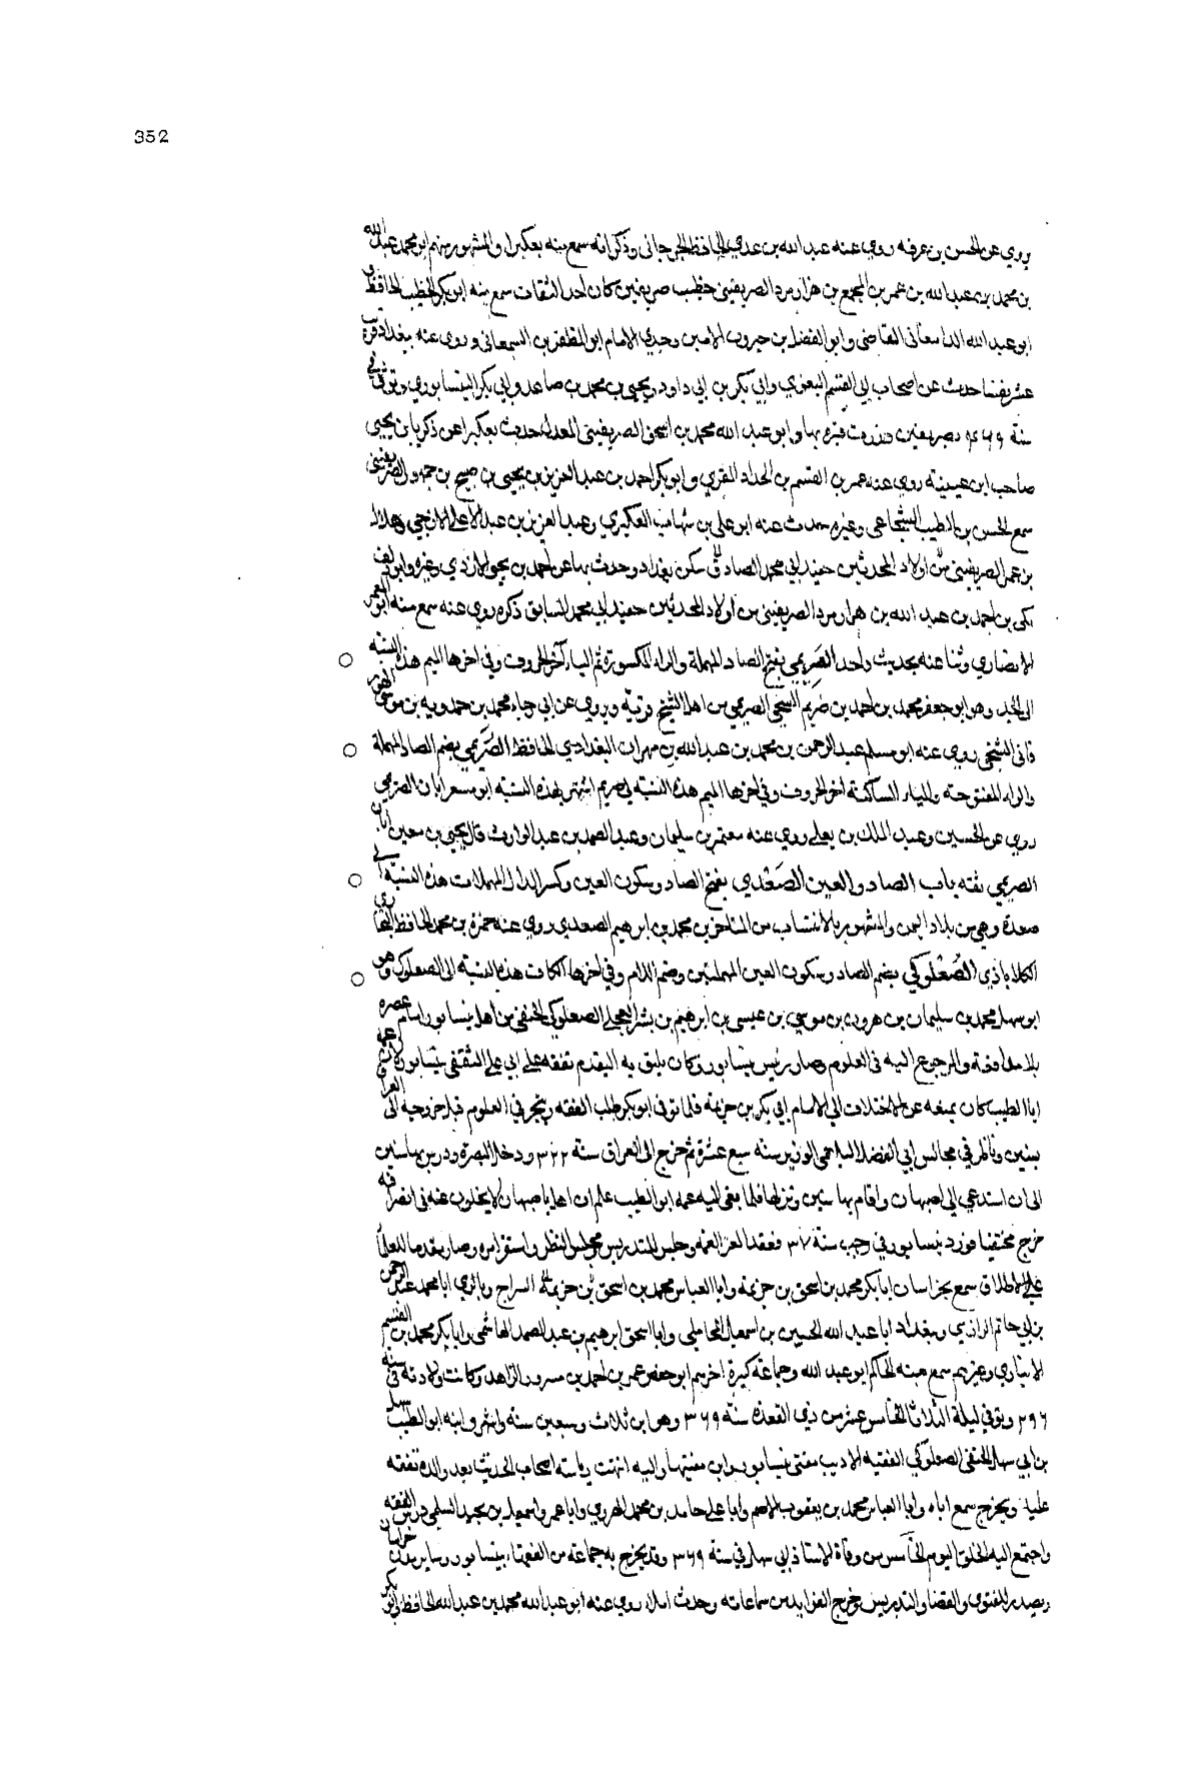 352
يروي عن الحسن بن عرفه روى عنه عبد الله بن عدي الحافظ الجرجاني وذكر انه سمع منه بعكبرا والمشهور منهم ابو محمد عبد الله
بن محمد بن عبد الله بن عمر بن المجمع بن هزارمرد الصريفيني خطيب صريفين كان احد الثقات سمع منه ابو بكر الخطيب الحافظ و
ابو عبد الله الدامغاني القاضي وابو الفضل بن خيرون الامين وجدي الامام ابو المظفر بن السمعاني وروى عنه ببغداد قرب
عشرين نفسا حدث عن اصحاب ابي القسم البغوي وابي بكر بن ابي داود ويحيى بن محمد بن صاعد وابي بكر النيسابوري وتوفي
سنة ۴۶۹ بصريفين وزرت قبره بها وابو عبد الله محمد بن اسحق الصريفيني المعدل حدث بعكبرا عن زكريا بن يحيى
صاحب ابن عيينة روى عنه عمر بن القسم بن الحداد المقري وابو بكر احمد بن عبد العزيز بن يحيى بن صبيح بن حمول الصريفيني
سمع الحسن بن الطيب الشجاعي وغيره حدث عنه ابو علي بن شهاب العكبري وعبد العزيز بن عبد الاعلى الازجي وهلال
بن عمر الصريفيني من اولاد المحدثين حفيد ابي محمد الصادق سكن بغداد وحدث بها عن احمد بن الازدي وغيره وابو
بن احمد بن عبد الله بن هزارمرد الصريفيني من اولاد المحدثين حفيد ابي محمد السابق ذكره روى عنه سمع منه ابو المعمر
الانصاري وثنا عنه بحديث واحد الصَرِيمي بفتح الصاد المهملة والراء المكسورة ثم الياء آخر الحروف وفي اخرها الميم هذه النسبة
الى الجد وهو ابو جعفر محمد بن احمد بن صريم السنجي الصريمي من اهل السنج قرية ويروي عن ابي رجاء محمد بن حمدويه بن موسى الهور
قاني السنجي روى عنه ابو مسلم عبد الرحمن بن محمد بن عبد الله بن مهران البغدادي الحافظ الصُرَيمي بضم الصاد المهملة
والراء المفتوحة والياء الساكنة اخر الحروف وفي اخرها الميم هذه النسبة الى صريم اشتهر بهذه النسبة ابو مسعر ابان الصريمي
روى عن الحسين وعبد الملك بن يعلى روى عنه معتمر بن سليمان وعبد الصمد بن عبد الوارث قال يحيى بن معين ابان
الصريمي ثقه باب الصاد والعين الصَعْدي بفتح الصاد وسكون العين وكسر الدال المهملات هذه النسبة الى
صعدة وهي من بلاد اليمن والمشهور بالانتساب من المتاخرين محمد بن ابرهيم الصعدي روى عنه حمزة بن محمد الحافظ
الكلاباذي الصُعْلوكي بضم الصاد وسكون العين المهملتين وضم اللام وفي اخرها الكاف هذه النسبة الى الصعلوك وهو
ابو سهل محمد بن سليمان بن هرون بن موسى بن عيسى بن ابرهيم بن بشر العجلي الصعلوكي الحنفي من اهل نيسابور امام عصره
بلا مدافعة والمرجوع اليه في العلوم وصار رئيس نيسابور وكان يليق به التقدم تفقه على ابي علي الثقفي بنيسابور لان عمه
ابا الطيب كان يمنعه عن الاختلاف الى الامام ابي بكر بن خزيمة فلما توفي ابو بكر طلب الفقه وتبحر في العلوم قبل خروجه الى العراق
بسنين وناظر في مجالس ابي الفضل البلعمي الوزير سنة سبع عشرة ثم خرج الى العراق سنة ٣٢٢ ودخل البصرة ودرس بها سنين
الى ان استدعي الى اصبهان واقام بها سنين ونزلها فلما نعي اليه عمه ابو الطيب علم ان اهل اصبهان لا يخلون عنه في انصرافه
خرج مختفيا فورد نيسابور في رجب سنة ٣٧ فعقد العزا لعمه وجلس للتدريس ومجلس النظر واستقر امره وصار مقدما للعلماء
على الاطلاق سمع بخراسان ابا بكر محمد بن اسحق بن خزيمة وابا العباس محمد بن اسحق بن خزيمة السراج وبالري ابا محمد عبد الرحمن
بن ابي حاتم الرازي وببغداد ابا عبد الله الحسين بن اسمعيل المحاملي وابا اسحق ابرهيم بن عبد الصمد الهاشمي وابا بكر محمد بن القسم
الانباري وغيرهم سمع منه الحاكم ابو عبد الله وجماعة كبيرة اخرهم ابو حفص عمر بن احمد بن مسرور الزاهد وكانت ولادته في سنة
٢٩٦ وتوفي ليلة الثلاثا الخامس عشر من ذي القعدة سنة ٣۶٩ وهو ابن ثلاث وسبعين سنة وابنه ابو الطيب سهل
بن ابي سهل الحنفي الصعلوكي الفقيه الاديب مفتي نيسابور وابن مفتيها واليه انتهت رياسة اصحاب الحديث بعد والده تفقه
عليه وتخرج سمع اباه وابا العباس محمد بن يعقوب الاصم وابا علي حامد بن محمد الهروي وابا عمرو اسمعيل بن نجيد السلمي درس الفقه
واجتمع اليه الخلق اليوم الخامس من وفاة الاستاذ ابي سهل في سنة ٣۶٩ وقد تخرج به جماعة من الفقهاء بنيسابور وساير مدن خراسان
وتصدر للفتوى والقضا والتدريس وخرج الفوايد من سماعاته وحدث املاء روى عنه ابو عبد الله محمد بن عبد الله الحافظ وابو بكر